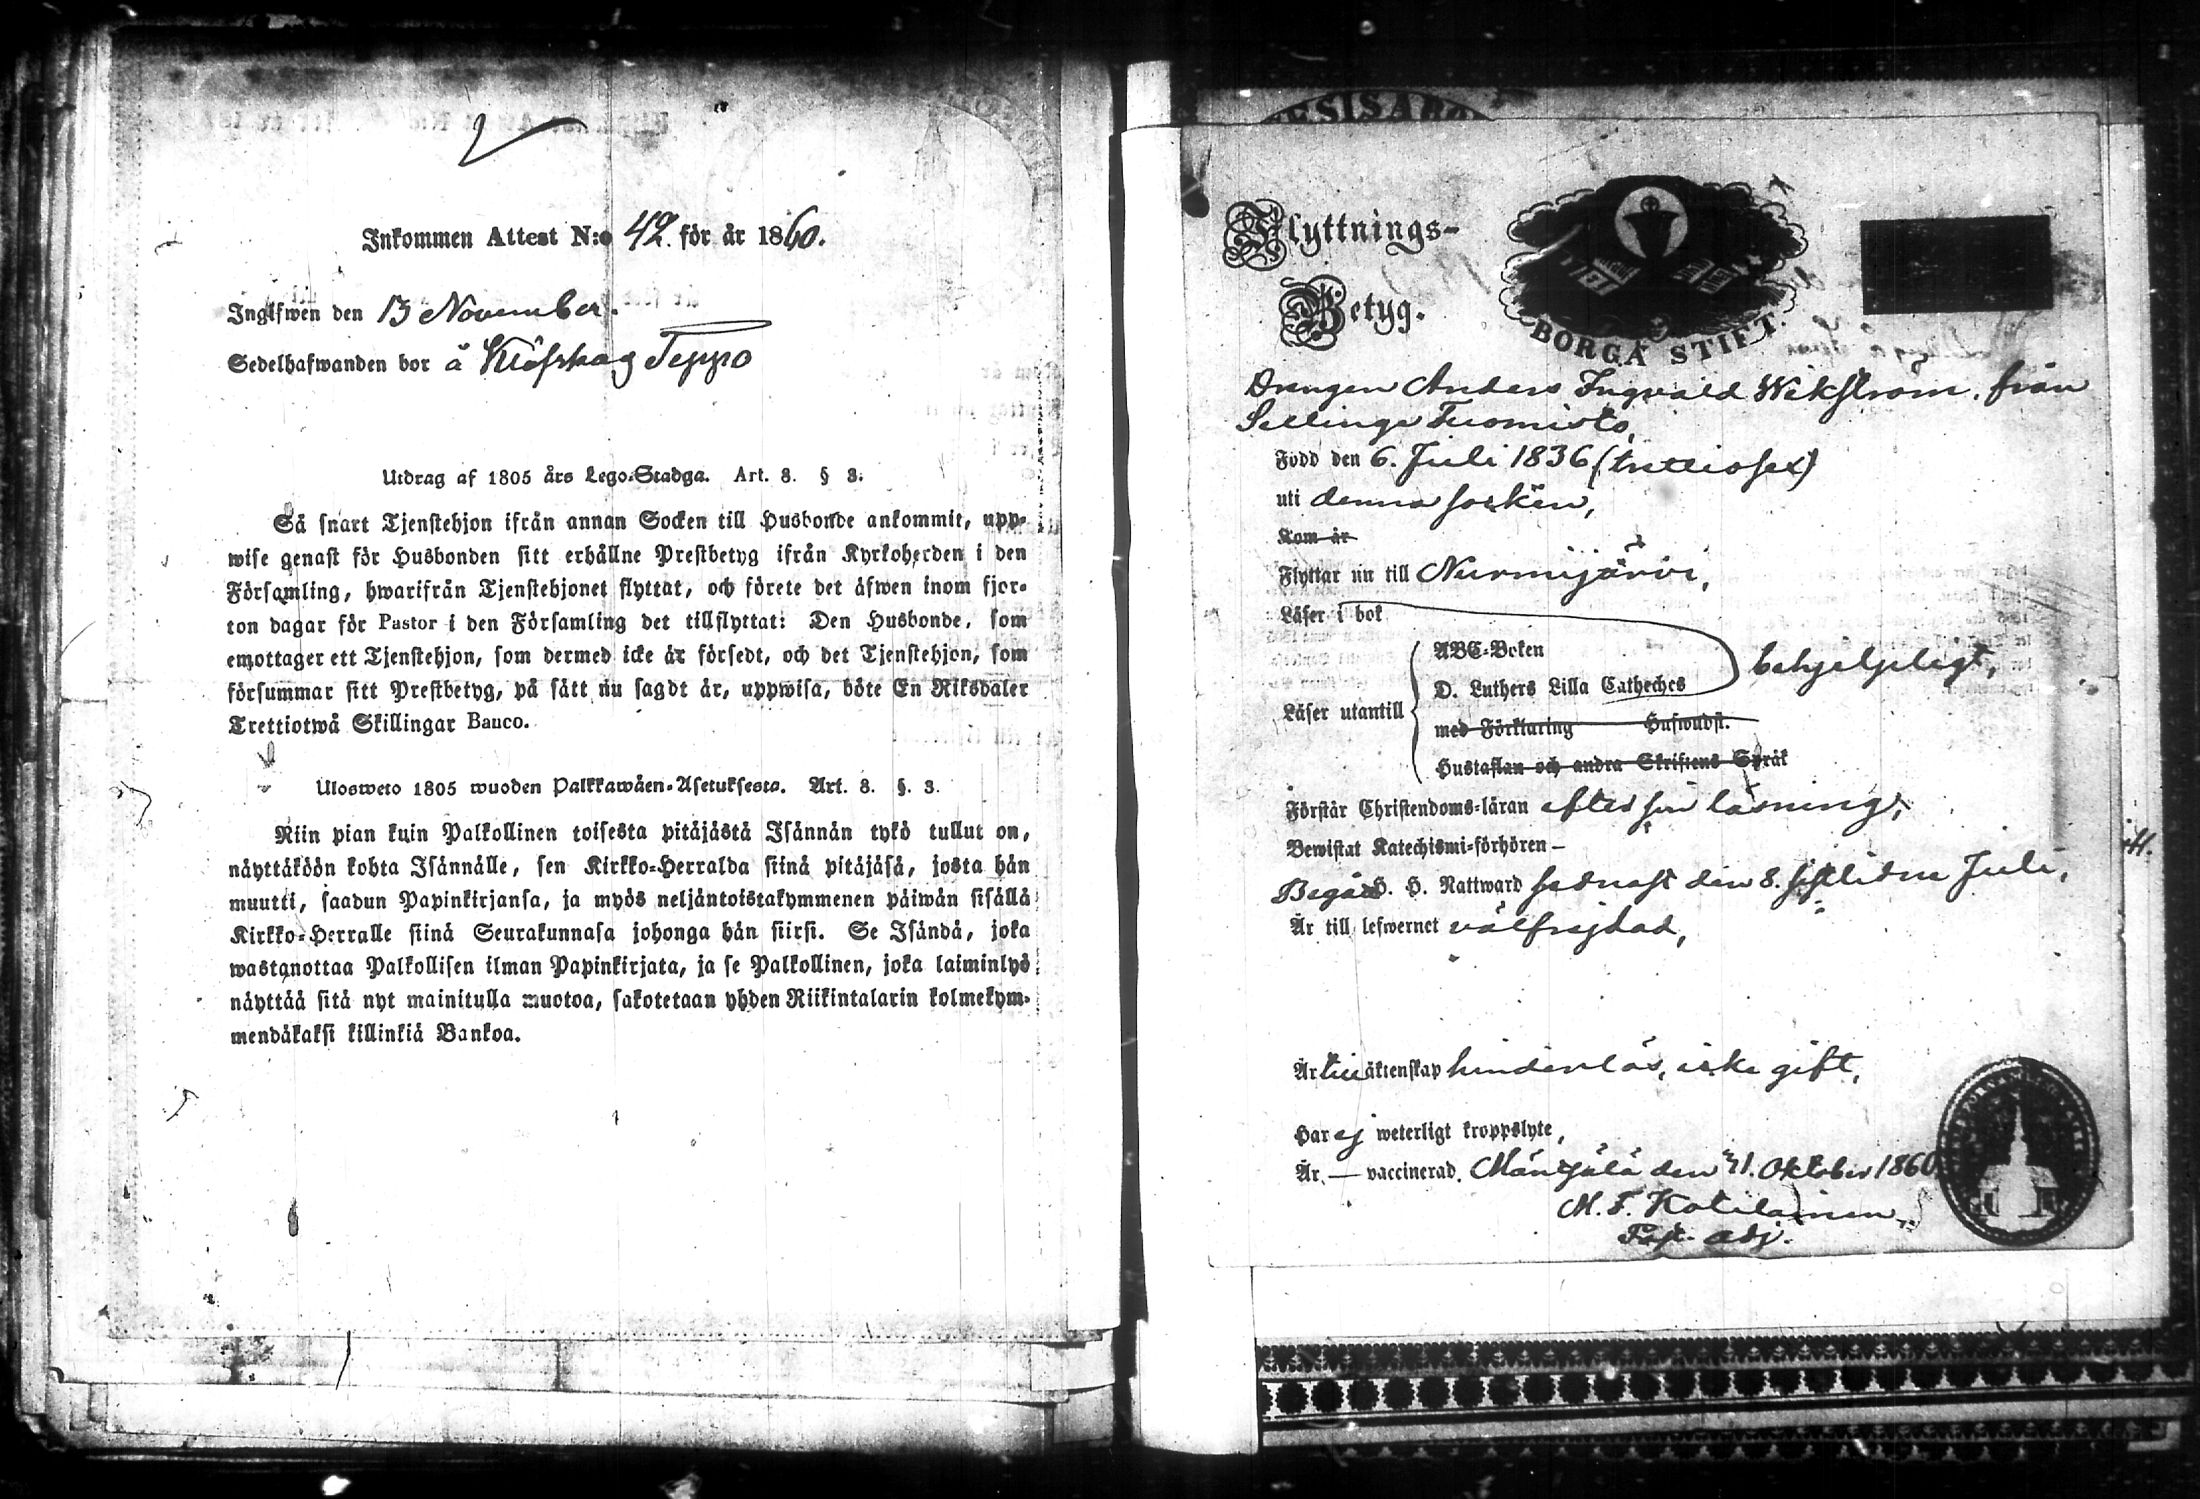 Inkommen Attest N:o 42. för år 1860.
Inglfwen den 13 November.
Sedelhafwanden bor å Klöfskog Teppo
Utdrag af 1805 års Lego-Stadga. Art. 8. § 3.
Så snart Tjenstehjon ifrån annan Socken till Husbonde ankommit, upp-
wise genast för Husbonden sitt erhållne Prestbetyg ifrån Kyrkoherden i den
Församling, hwarifrån Tjenstehjonet flyttat, och förete det äfwen inom fjor-
ton dagar för Pastor i den Församling det tillflyttat: Den Husbonde, som
emottager ett Tjenstehjon, som dermed icke är försedt, och det Tjenstehjon, som
försummar sitt Prestbetyg, på sätt nu sagdt är, uppwisa, böte En Riksdaler
Trettiotwå Skillingar Banco.
Ulosweto 1805 wuoden Palkkawäen-Asetuksesta. Art. 8. §. 3.
Niin pian kuin Palkollinen toisesta pitäjästä Isännän tykö tullut on,
näyttäköön kohta Isännälle, sen Kirkko-Herralda siinä pitäjäsä, josta hän
muutti, saadun Papinkirjansa, ja myös neljäntoistakymmenen päiwän sisällä
Kirkko-Herralle siinä Seurakunnasa johonga hän siirsi. Se Isändä, joka
wastanottaa Palkollisen ilman Papinkirjata, ja se Palkollinen, joka laiminlyö
näyttää sitä nyt mainitulla muotoa, sakotetaan yhden Riikintalarin kolmekym-
mendäkaksi killinkiä Bankoa.
Flyttnings-
Betyg.
BORGÅ STIFT.
Drengen Anders Ingvald Wikström, från
Sellinge Tuomisto,
Född den 6. Juli 1836 (trettiosex)
uti denna socken,
Kom år
Flyttar nu till Nurmijärvi,
Läser i bok
ABC-Boken
D. Luthers Lilla Catheches
behjelpeligt,
Läser utantill
med Förklaring Huswudst.
Hustaflan och andra Skriftens Språk
Förstår Christendoms-läran efter sin läsning,
Bewistat Katechismi-förhören –
Begått H. H. Nattward sednast den 8. sistlidne Juli,
Är till lefwernet välfrejdad,
Är till äktenskap hinderlös, icke gift,
Har ej weterligt kroppslyte,
Är — vaccinerad. Mäntsälä den 31. Oktober 1860
M. F. Kotilainen
Past. adj.